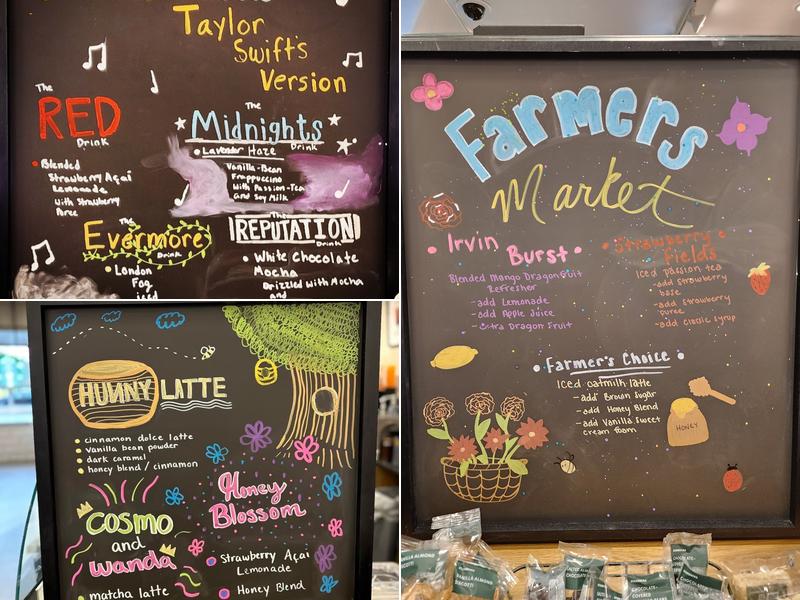 Taylor
Swift's
Version
The
RED
Drink
Blended
Strawberry Açaí
Lemonade
with Strawberry
Puree
The
Midnights
Drink
Lavender Haze
Vanilla-Bean
Frappuccino
With Passion-Tea
and Soy Milk
The
Evermore
Drink
London
Fog
iced
The
REPUTATION
Drink
White Chocolate
Mocha
Drizzled With Mocha
and
HUNNY LATTE
cinnamon dolce latte
vanilla bean powder
dark caramel
honey blend / cinnamon
COSMO
and
wanda
matcha latte
Honey
Blossom
Strawberry Açaí
Lemonade
Honey Blend
Farmers
Market
Irvin
Burst
Blended Mango Dragonfruit
Refresher
-add Lemonade
-add Apple Juice
-Extra Dragon Fruit
Strawberry
Fields
Iced passion tea
-add strawberry
base
-add strawberry
puree
-add classic syrup
Farmer's Choice
Iced oatmilk latte
-add Brown Sugar
-add Honey Blend
-add Vanilla Sweet
cream foam
HONEY
VANILLA ALMOND
BISCOTTI
VANILLA ALMOND
BISCOTTI
CHOCOLATE-
COVERED